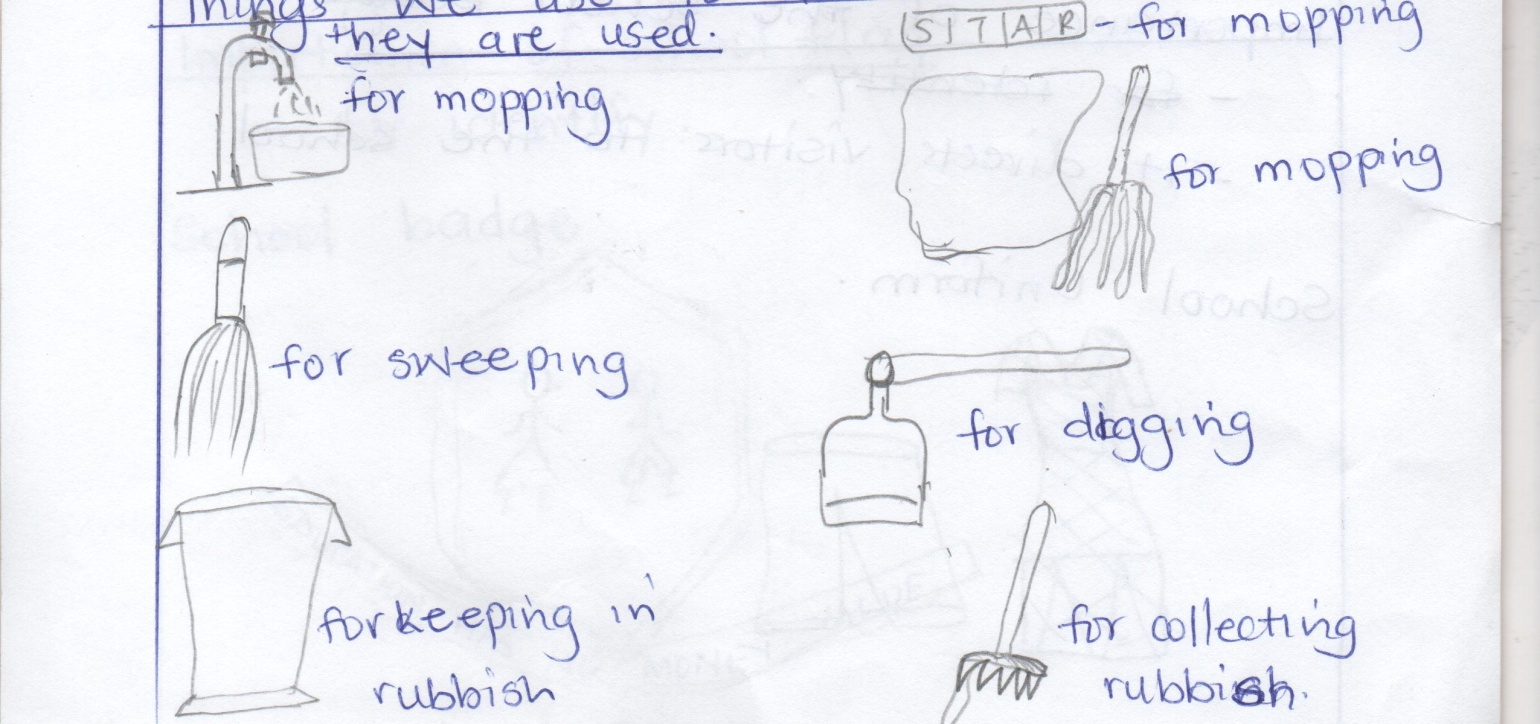 Things we use
they are used.
for mopping
SITAR - for mopping
for mopping
for sweeping
for digging
for keeping in
rubbish
for collecting
rubbish.